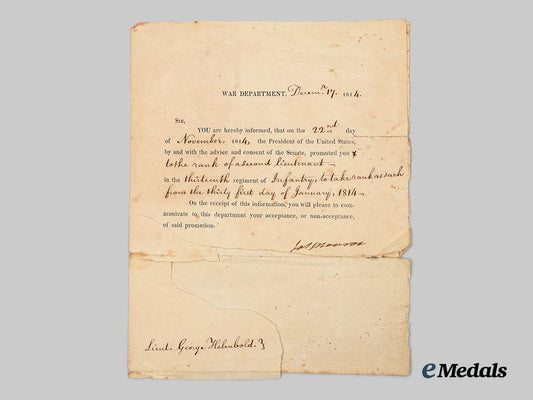 WAR DEPARTMENT, Decemr. 17. 1814.
SIR,
YOU are hereby informed, that on the 22nd day
of November, 1814, the President of the United States,
by and with the advice and consent of the Senate, promoted you
to the rank of a second lieutenant
in the thirteenth regiment of Infantry, to take rank as such
from the thirty first day of January, 1814
On the receipt of this information, you will please to com-
municate to this department your acceptance, or non-acceptance,
of said promotion.
Jas Monroe
Lieut. George Helmbold.
eMedals